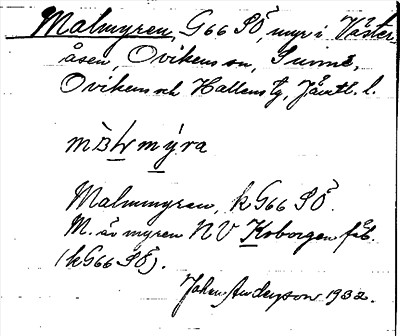 Malmyren, G66 SÖ, myr i Väster-
åsen, Ovikens sn, Sunne,
Ovikens och Hallens tg, Jämtl. l.
mýra
Malmmyren, k G66 SÖ.
M. är myren NV Koborgen fäb.
(k G66 SÖ).
Johan Anderson 1932.